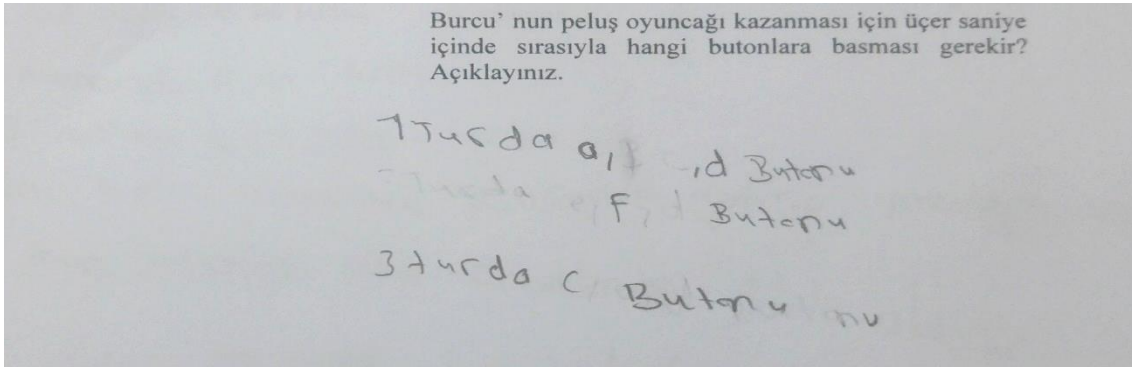 Burcu' nun peluş oyuncağı kazanması için üçer saniye
içinde sırasıyla hangi butonlara basması gerekir?
Açıklayınız.
1 Turda a, ,d Butonu
F Butonu
3 turda c Butonu nu